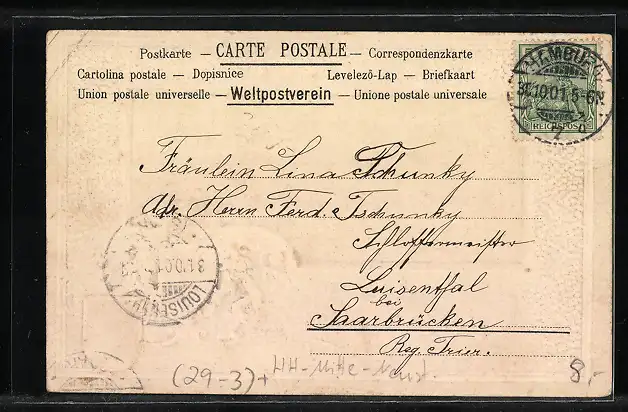 Postkarte – CARTE POSTALE – Correspondenzkarte
Cartolina postale – Dopisnice Levelező-Lap – Briefkaart
Union postale universelle – Weltpostverein – Unione postale universale
HAMBURG
31.10.01 5-6N
REICHSPOST
Fräulein Lina Tschunky
Adr. Herrn Ferd. Tschunky
Schlossermeister
Luisenthal
bei
Saarbrücken
Reg. Trier.
31.10.01
LOUISENTH
(29-3)+ HH-Mitte-Neust.
8,-